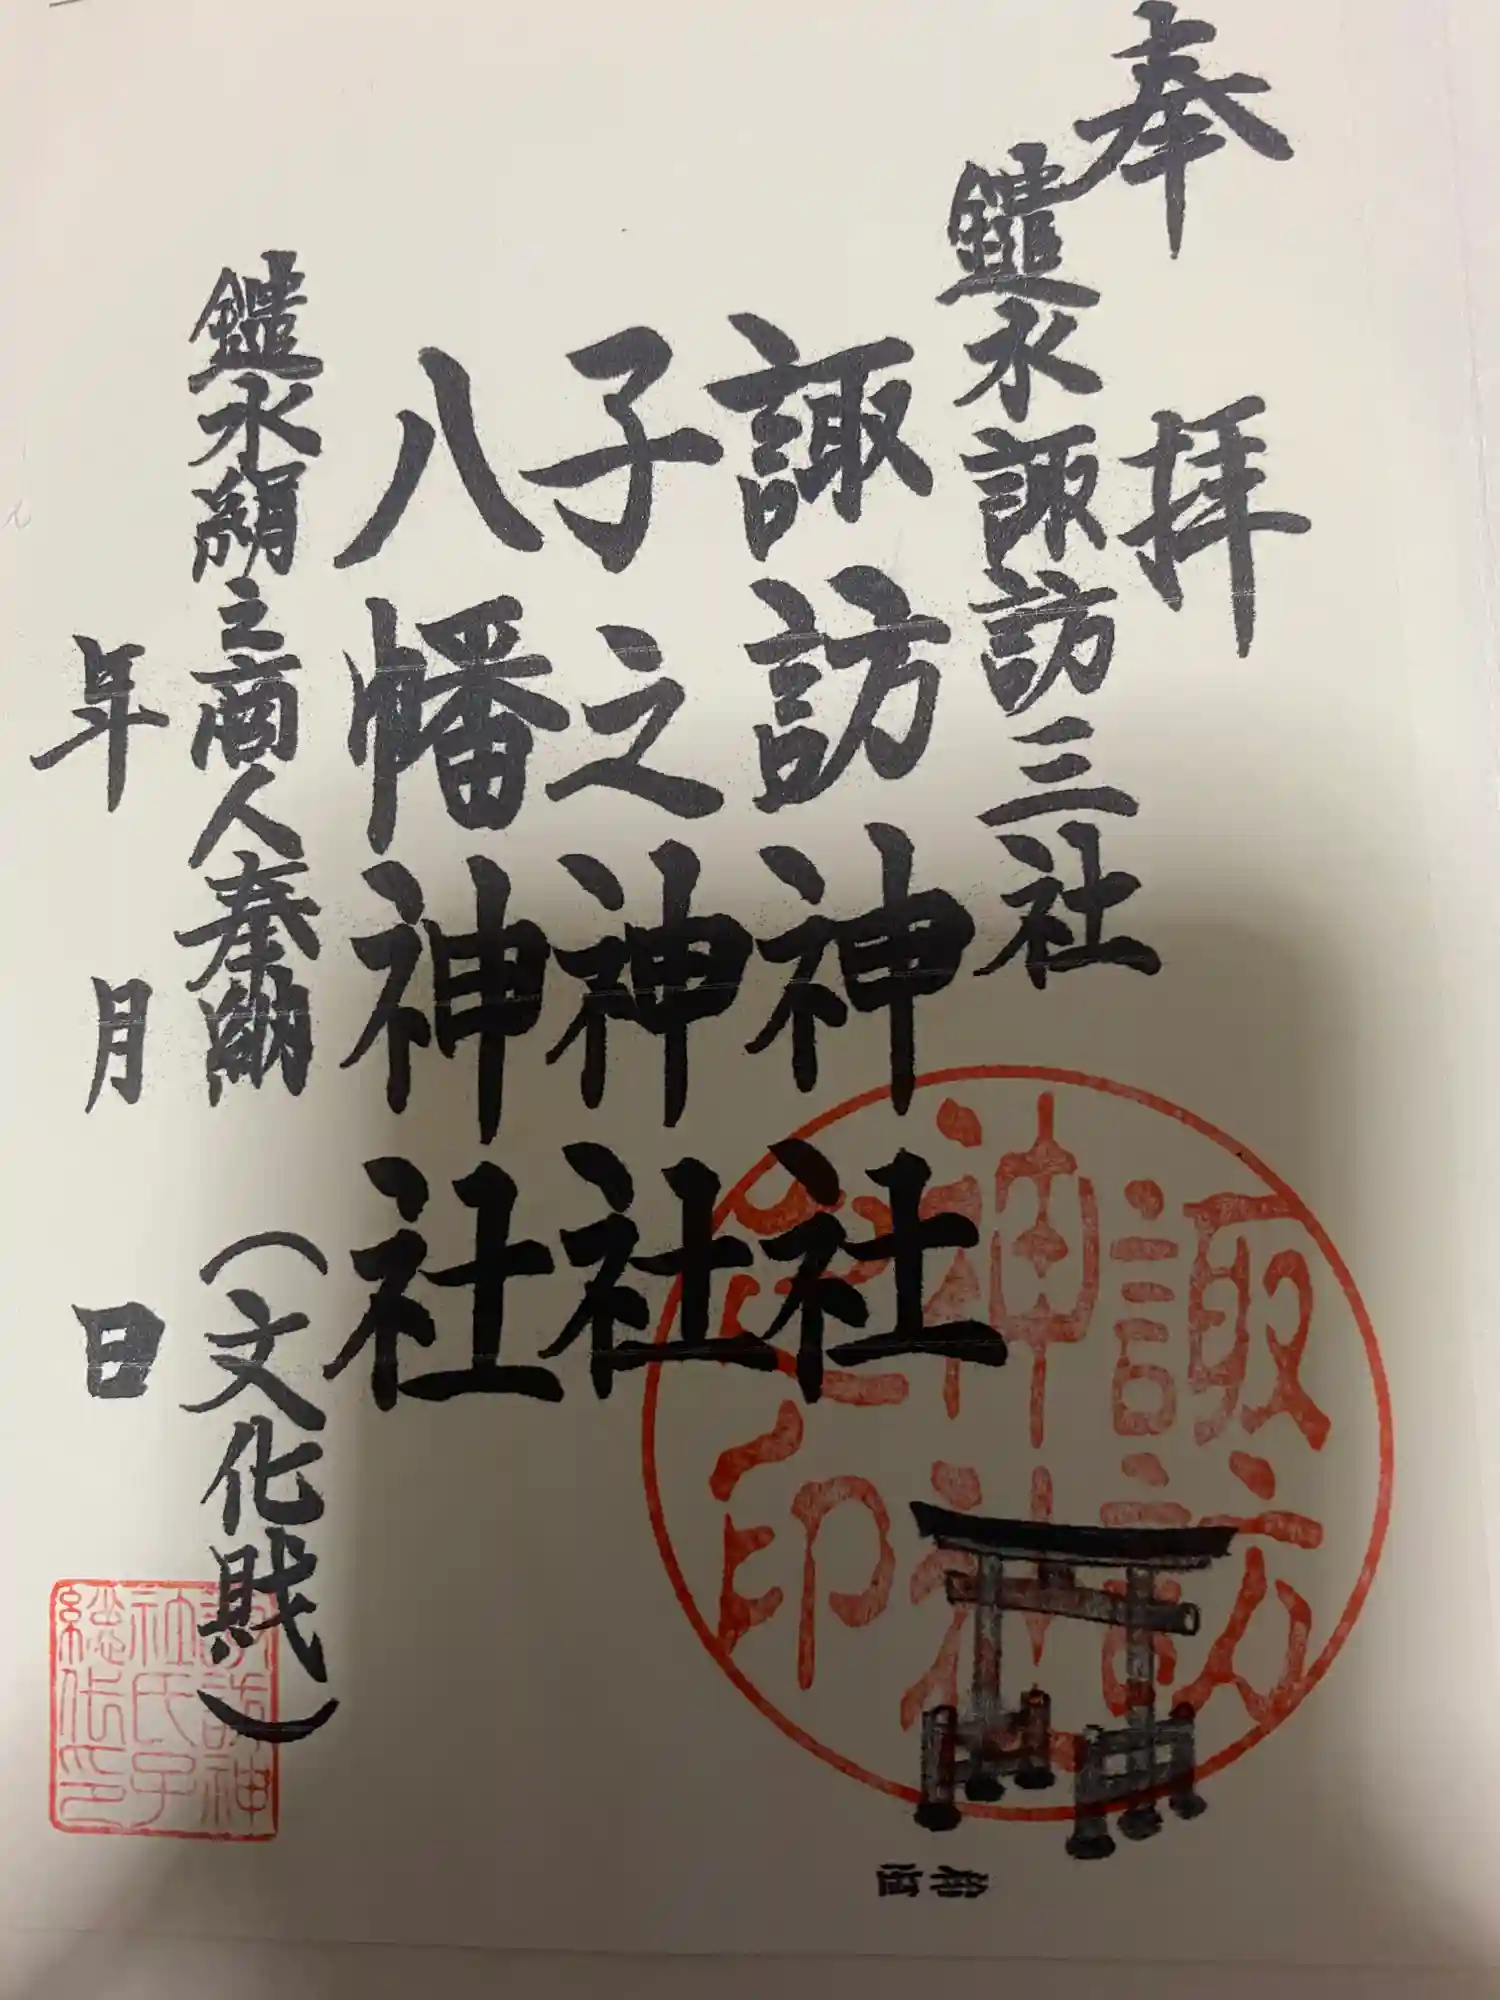 奉拝
鑓水諏訪三社
諏訪神社
子之神神社
八幡神社
鑓水絹之商人奉納(文化財)
年月日
諏訪
神社
印
諏訪神
社氏子
総代印